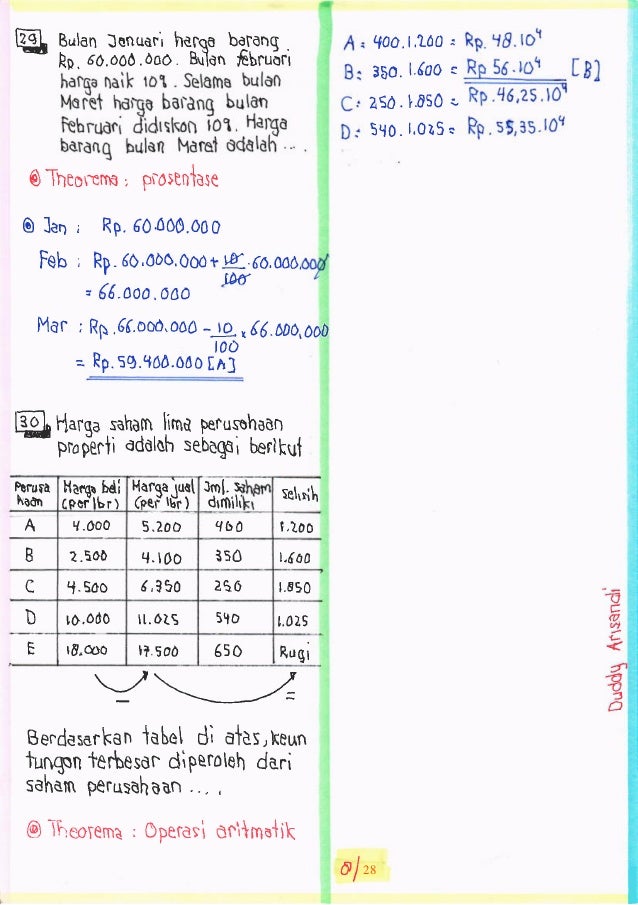 29. Bulan Januari harga barang
Rp. 60.000.000. Bulan februari
harga naik 10%. Selama bulan
Maret harga barang bulan
Februari didiskon 10%. Harga
barang bulan Maret adalah ...
@ Theorema : prosentase
@ Jan : Rp. 60.000.000
Feb : Rp. 60.000.000 + 10/100 . 60.000.000
= 66.000.000
Mar : Rp. 66.000.000 - 10/100 x 66.000.000
= Rp. 59.400.000 [A]
30. Harga saham lima perusahaan
properti adalah sebagai berikut
Perusahaan Harga beli (per lbr) Harga jual (per lbr) Jml. saham dimiliki selisih
A 4.000 5.200 400 1.200
B 2.500 4.100 350 1.600
C 4.500 6.350 250 1.850
D 10.000 11.025 540 1.025
E 18.000 17.500 650 Rugi
- =
Berdasarkan tabel di atas, keun
tungan terbesar diperoleh dari
saham perusahaan ....
@ Theorema : Operasi aritmatik
A : 400.1.200 = Rp. 48.10⁴
B : 350. 1.600 = Rp 56.10⁴ [B]
C : 250. 1.850 = Rp. 46,25.10⁴
D : 540. 1.025 = Rp. 55,35.10⁴
Duddy Arisandi
8/28